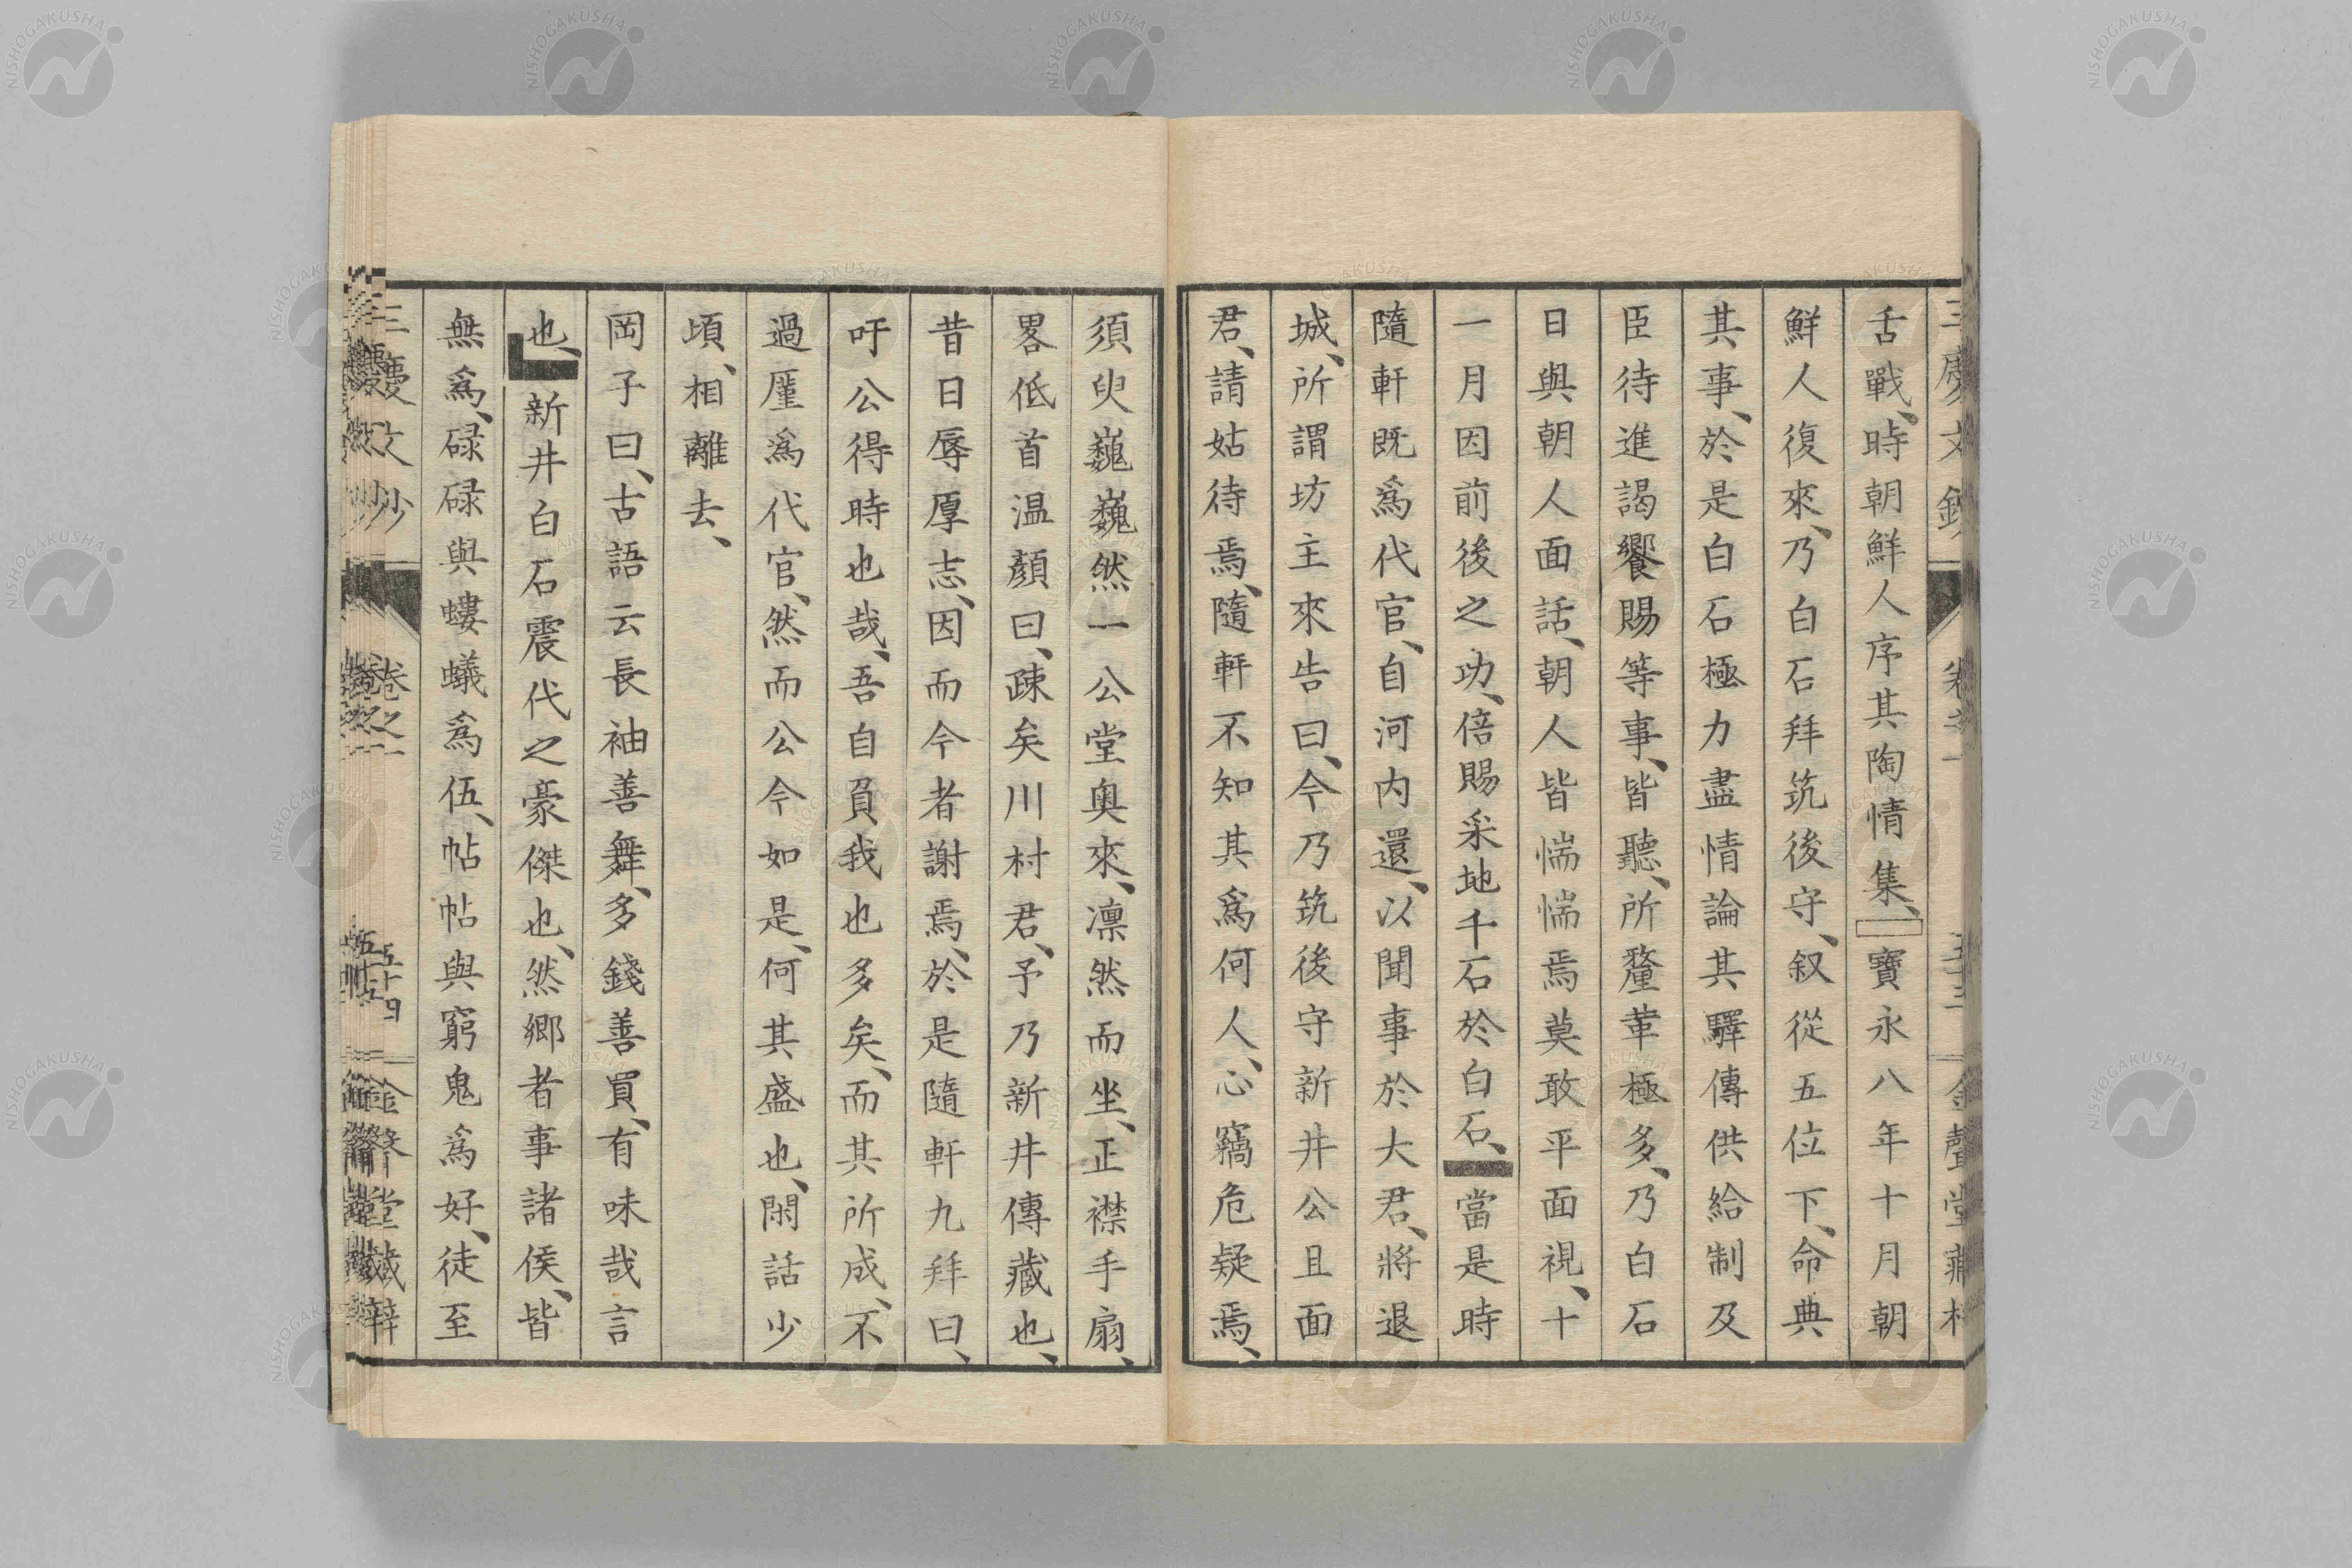 舌戰、時朝鮮人序其陶情集、寶永八年十月朝
鮮人復來、乃白石拜筑後守、叙從五位下、命典
其事、於是白石極力盡情論其驛傳供給制及
臣待進謁饗賜等事、皆聽、所釐革極多、乃白石
日與朝人面話、朝人皆惴惴焉莫敢平面視、十
一月因前後之功、倍賜采地千石於白石、當是時
隨軒既爲代官、自河内還、以聞事於大君、將退
城、所謂坊主來告曰、今乃筑後守新井公且面
君、請姑待焉、隨軒不知其爲何人、心竊危疑焉、
須臾巍巍然一公堂奥來、凛然而坐、正襟手扇、
畧低首温顏曰、疎矣川村君、予乃新井傳藏也、
昔日辱厚志、因而今者謝焉、於是隨軒九拜曰、
吁公得時也哉、吾自負我也多矣、而其所成、不
過厪爲代官、然而公今如是、何其盛也、閑話少
頃、相離去、
岡子曰、古語云長袖善舞、多錢善買、有味哉言
也、新井白石震代之豪傑也、然郷者事諸侯、皆
無爲、碌碌與螻蟻爲伍、帖帖與窮鬼爲好、徒至
卷之一
五十四